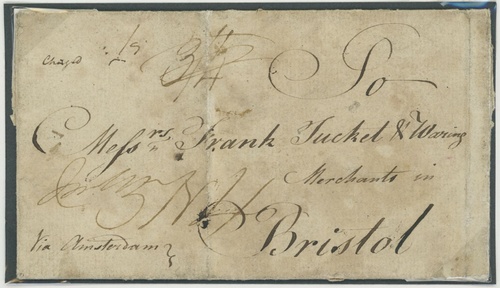 Charged 1/9
To
Messrs. Frank Tucket & Waring
Merchants in
Bristol
Via Amsterdam